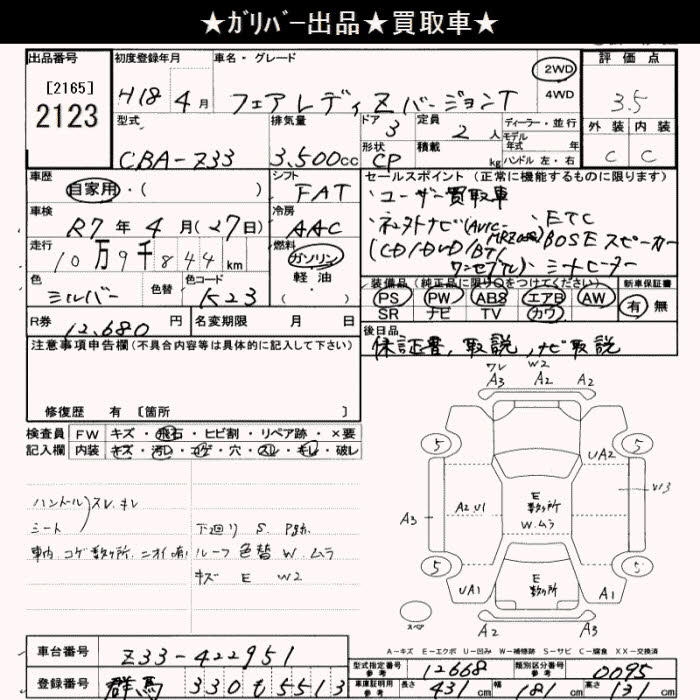 ★ｶﾞﾘﾊﾞｰ出品★買取車★
出品番号 初度登録年月 車名・グレード 評価点
[2165]
2123
H18年4月 フェアレディZバージョンT
2WD
4WD
3.5
型式 排気量 ドア 定員 ディーラー・並行
3 2人 モデル 年式 年
外装 内装
CBA-Z33 3,500cc
形状 積載 kg ハンドル 左・右
CP
C C
車歴 シフト セールスポイント (正常に機能するものに限ります)
自家用・( ) FAT
・ユーザー買取車
車検 冷房
R7年4月(27日) AAC
・ETC
BOSEスピーカー
(CD/DVD/BT/
ワンセグTV)
シートヒーター
走行 燃料
10万9千844km ガソリン
軽油
( )
色 色替 色コード
シルバー K23
装備品 (純正品に限り○をつけてください) 新車保証書
PS PW ABS エアB AW 有 無
SR ナビ TV カワ
R券 12,680円 名変期限 月 日
後日品
保証書,取説,ナビ取説
注意事項申告欄(不具合内容等は具体的に記入して下さい)
修復歴 有 [箇所 ]
検査員 FW キズ・飛石・ヒビ割・リペア跡・×要
記入欄 内装 キズ・汚レ・コゲ・穴・スレ・キレ・破レ
ハンドル
シート
スレ.キレ
車内 コゲ数ヶ所.ニオイ有
下廻り S.
ルーフ 色替 W ムラ
キズ E W2
ワレ W2
A3 A2 A2
5 5
UA2
A3 A2 U1
E
数ヶ所
W.ムラ
U13
5 5
UA1
E
数ヶ所
A1
スペア A2 A3
A-キズ E-エクボ U-凹み W-補修跡 S-サビ C-腐食 XX-交換済
車台番号 Z33-422951
登録番号 群馬 330も5513
型式指定番号 参考 12668 類別区分番号 参考 0095
車庫証明用 参考 長さ 431cm 幅 181cm 高さ 131cm